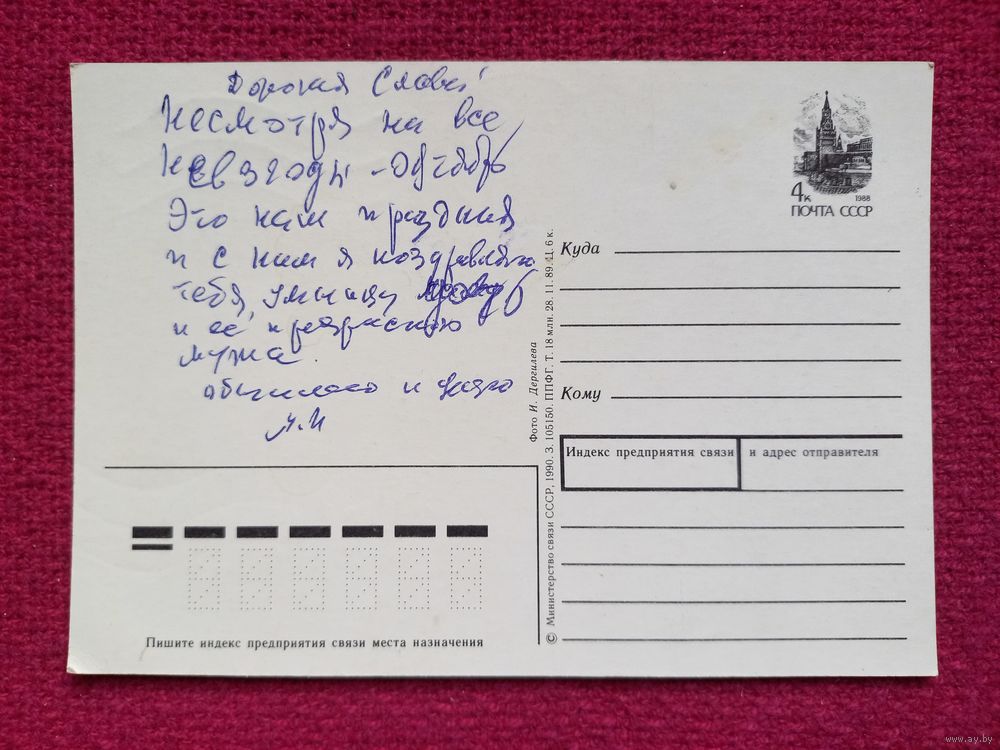 Дорогая Слава!
Несмотря на все
невзгоды - Октябрь
Это наш праздник
и с ним я поздравляю
тебя, умницу
и её прекрасного
мужа.
обнимаю и целую
4к
1988
ПОЧТА СССР
Куда
Кому
Индекс предприятия связи и адрес отправителя
Фото И. Дергилева
© Министерство связи СССР, 1990. З. 105150. ППФГ. Т. 18 млн. 28.11.89. Ц. 6 к.
Пишите индекс предприятия связи места назначения
www.ay.by